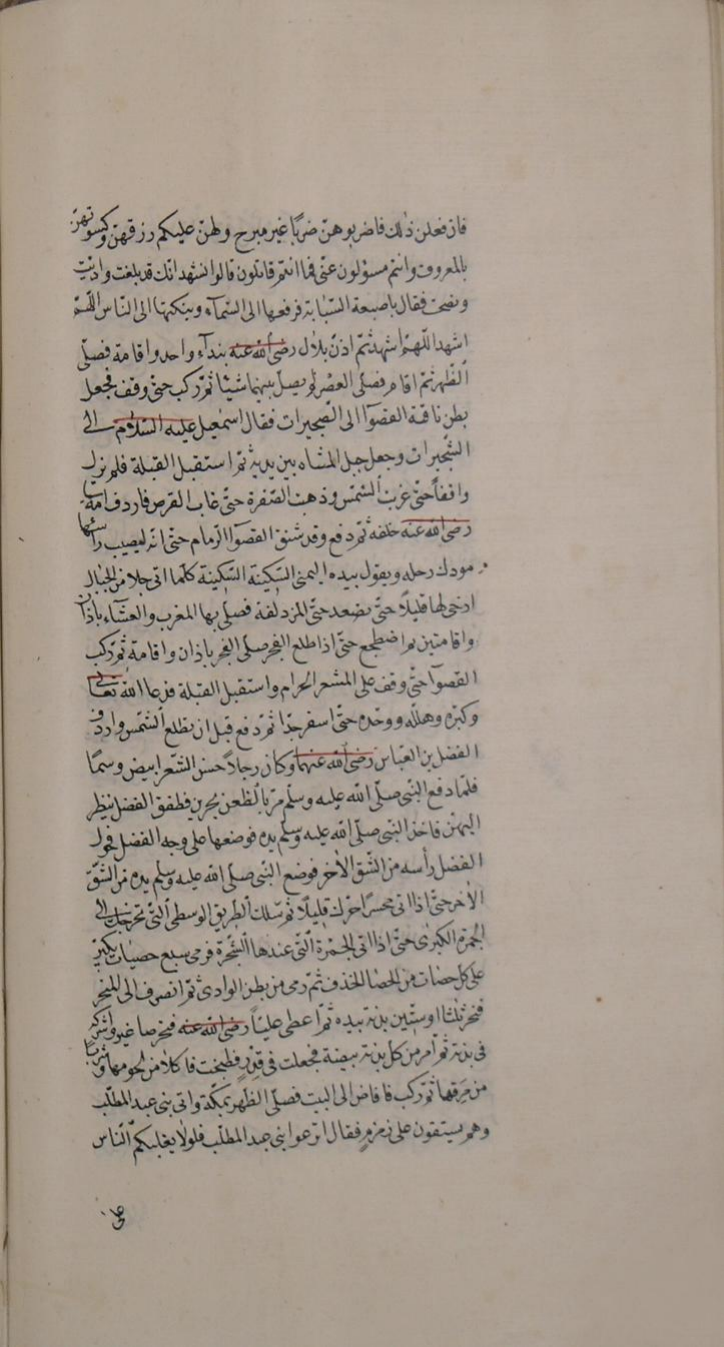 فان فعلن ذلك فاضربوهن ضربًا غير مبرح ولهن عليكم رزقهن وكسوتهن
بالمعروف وانتم مسؤلون عنى فما انتم قائلون قالوا نشهد انك قد بلغت واديت
ونصحت فقال باصبعة السبابة فرفعها الى السمآء وينكتها الى الناس اللهم
اشهد اللهم اشهد ثم اذن بلال رضى الله عنه بندآء واحد واقامة فصلى
الظهر ثم اقام فصلى العصر لم يصل بينهما شيئا ثم ركب حتى وقف فجعل
بطن ناقة القصوآ الى الصحيرات فقال اسمعيل عليه السلام الى
الشجيرات وجعل جبل المشاه بين يديه ثم استقبل القبلة فلم يزل
واقفاً حتى غربت الشمس وذهبت الصفرة حتى غاب القرص فاردف اسامة
رضى الله عنه خلفه ثم دفع وقد شنق القصوآ الزمام حتى انه ليصيب رأسها
مودك رحله ويقول بيده اليمنى السكينة السكينة كلما اتى جلا من الجبال
ارخى لها قليلاً حتى تصعد حتى المزدلفة فصلى بها المغرب والعشآء باذان
واقامتين ثم اضطجع حتى اذا طلع الفجر صلى الفجر باذان واقامة ثم ركب
القصوآ حتى وقف على المشعر الحرام واستقبل القبلة فدعا الله تعالى
وكبره وهلله ووحده حتى اسفر جدا ثم دفع قبل ان تطلع الشمس واردف
الفضل بن العباس رضى الله عنهما وكان رجلاً حسن الشعر ابيض وسمًا
فلما دفع النبى صلى الله عليه وسلم مر بالظعن يجرين فطفق الفضل ينظر
اليهن فاخذ النبى صلى الله عليه وسلم يده فوضعها على وجه الفضل فحول
الفضل رأسه من الشق الأخر فوضع النبى صلى الله عليه وسلم يده من الشق
الأخر حتى اذا اتى محسرًا حرك قليلاً ثم سلك الطريق الوسطى التى تخرجك الى
الجمرة الكبرى حتى اذا اتى الجمرة التى عندها الشجرة فرمى بسبع حصيات يكبر
على كل حصات من الحصا الخذف ثم رمى من بطن الوادى ثم انصرف الى المنحر
فنحر ثلثا وستين بدنة بيده ثم اعطى علياً رضى الله عنه فنحر ما غبر واشركه
فى بدنة ثم امر من كل بدنة ببضعة فجعلت فى قدر فطبخت فاكلا من لحومها وشربا
من مرقها ثم ركب فافاض الى البيت فصلى الظهر بمكة واتى بنى عبد المطلب
وهم يستقون على زمزم فقال انزعوا بنى عبد المطلب فلولا يغلبكم الناس
على